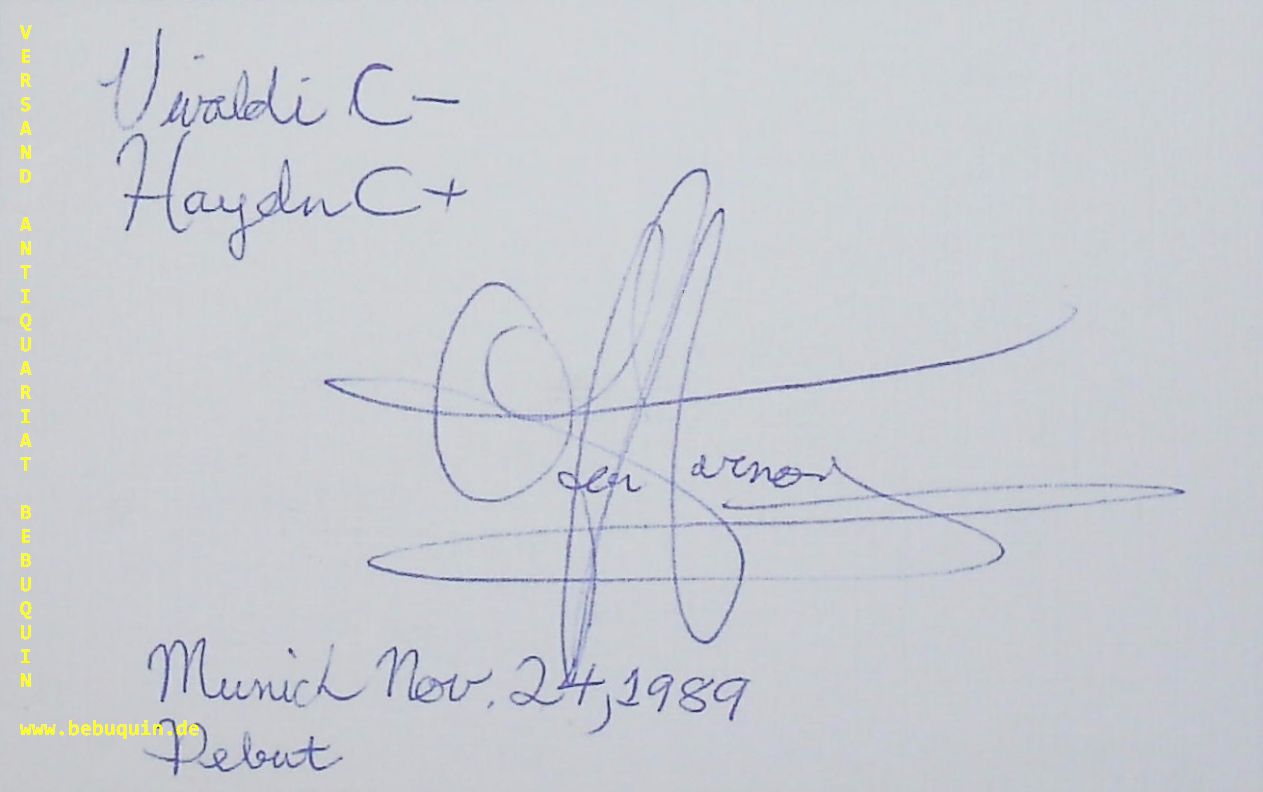 VERSAND ANTIQUARIAT BEBUQUIN
Vivaldi C-
Haydn C+
Ofra Harnoy
Munich Nov. 24, 1989
www.bebuquin.de
Debut